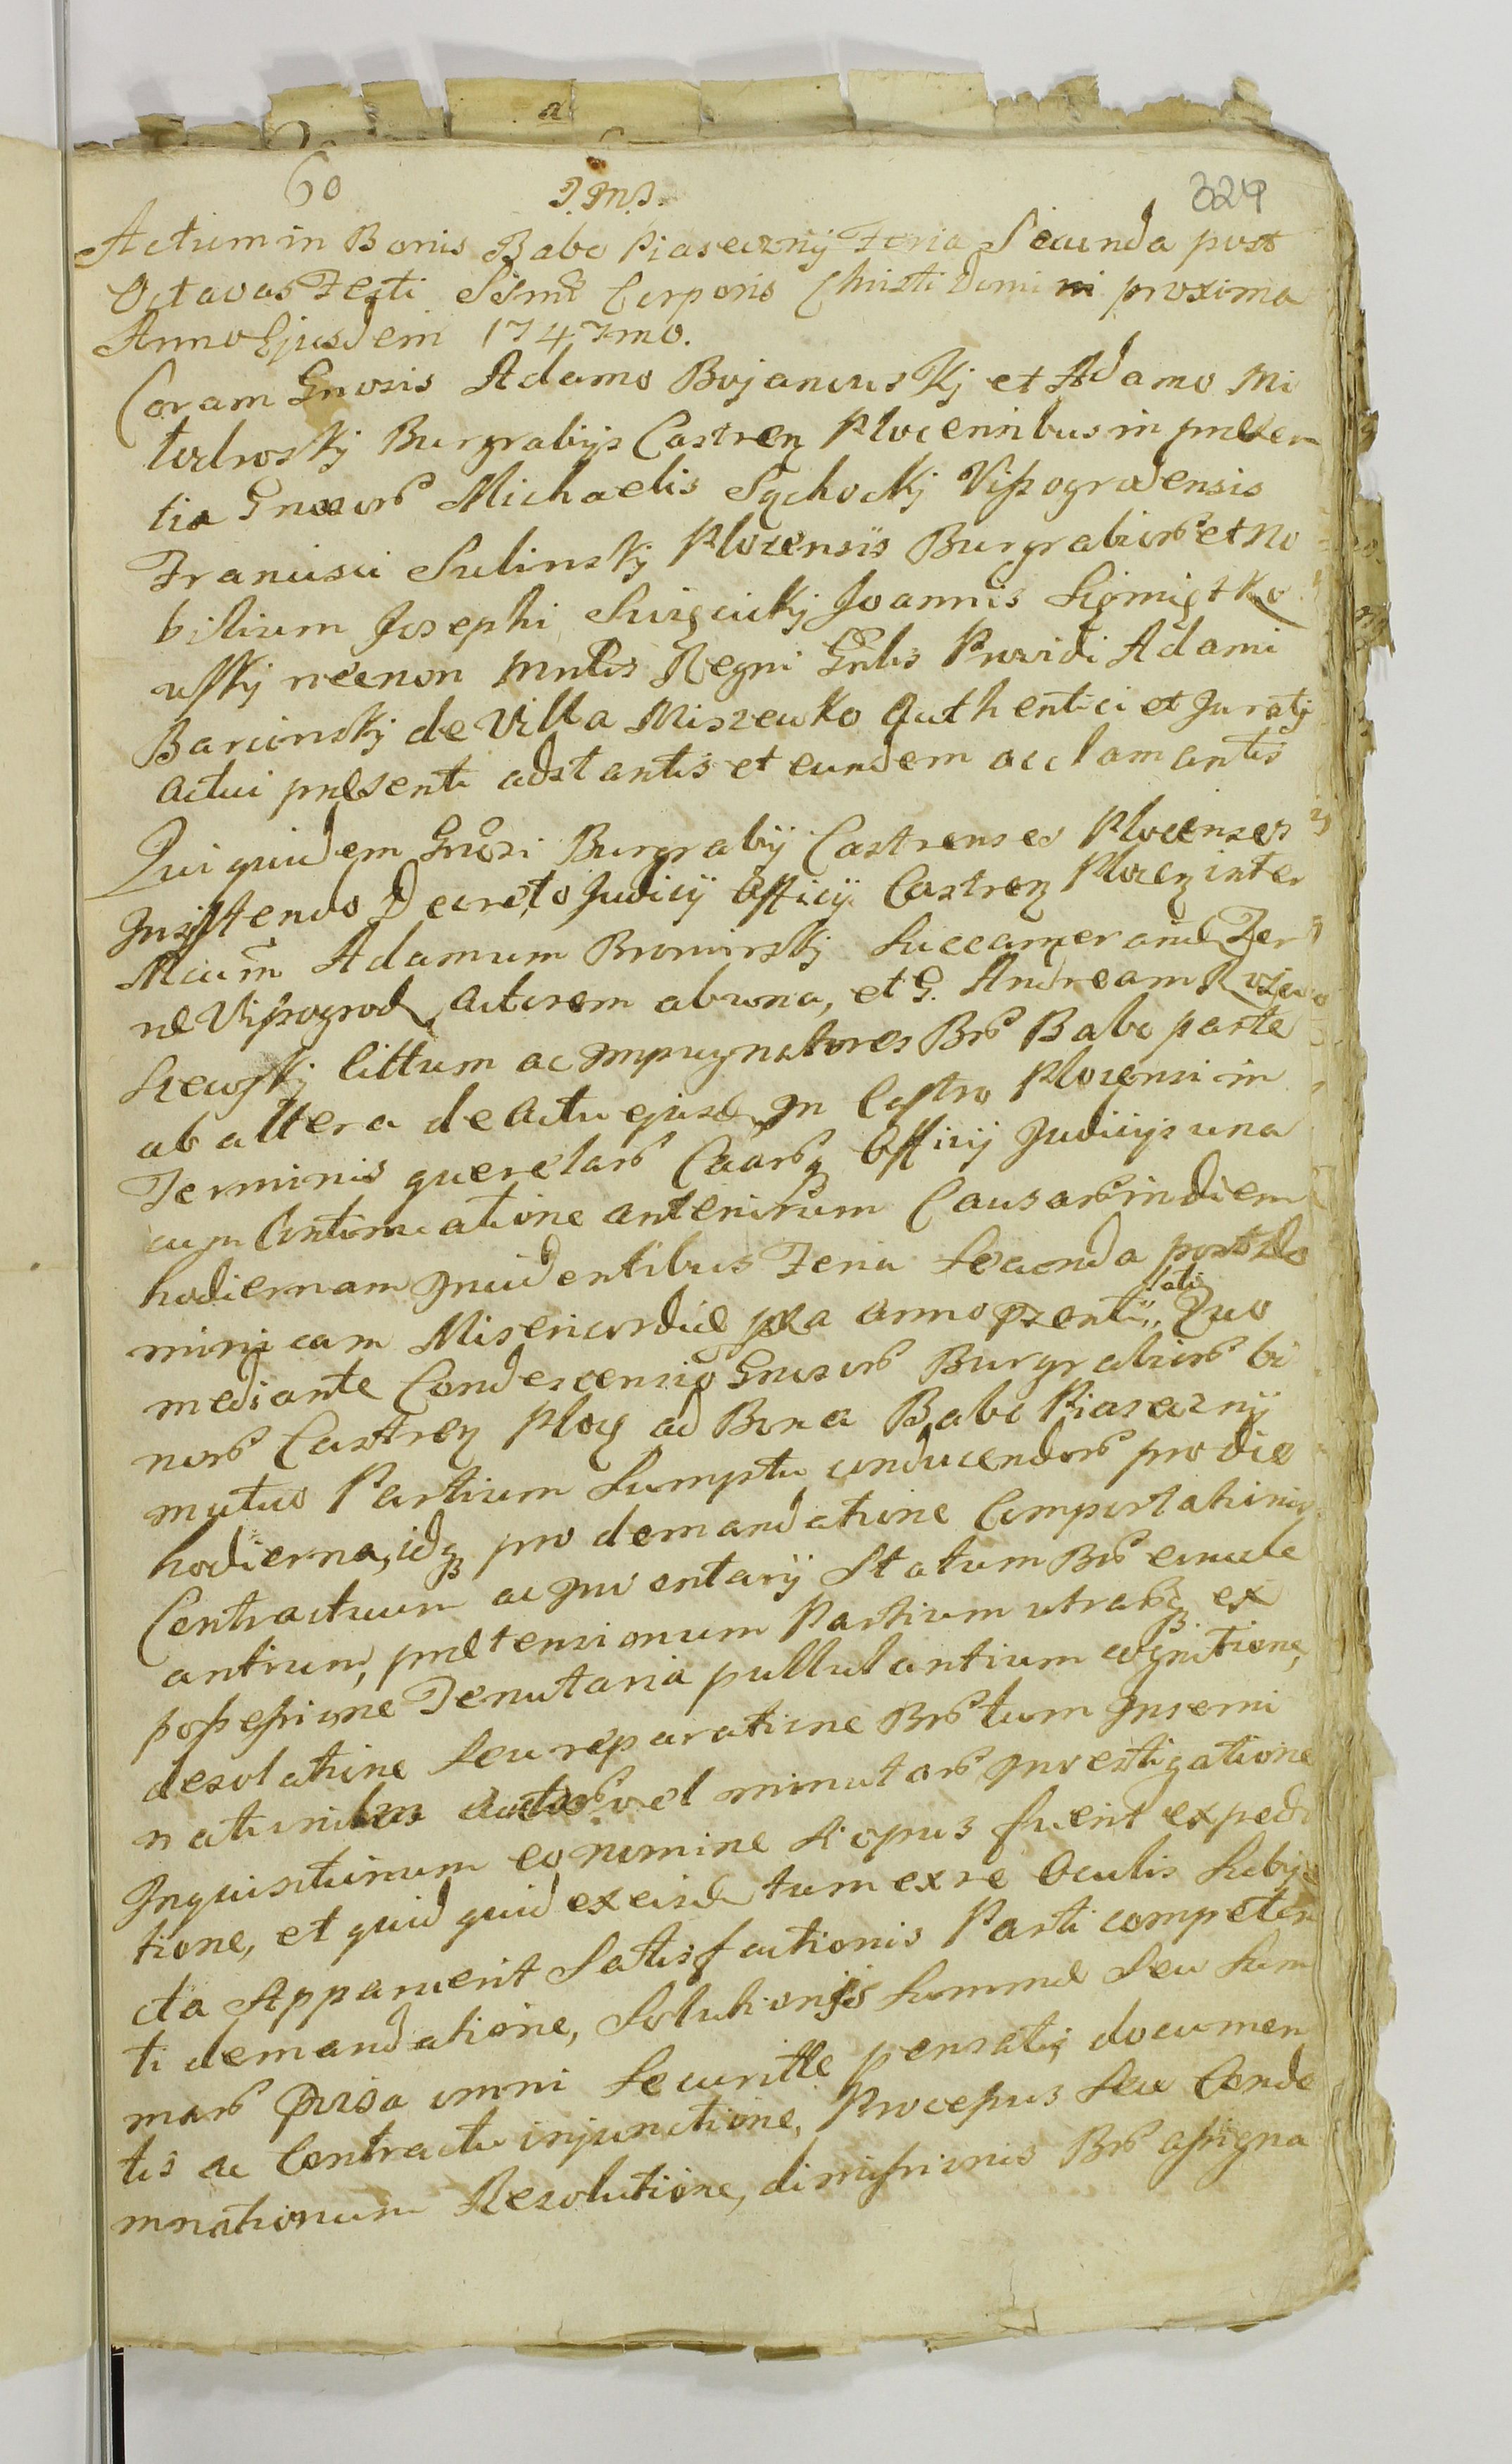 a
60 J.M.J. 329
Actum in Bonis Babe Piaseczny Feria Secunda post
Octavas Festi Ssmi Corporis Christi Domini proxima
Anno Ejusdem 1747mo.
Coram Gnosis Adamo Bojanowskj et Adamo Mi
Burgrabijs Castren Plocennibus in præsen
tia Gnosorb Michaelis Sychockj Vissogrodensis
Francisci Sulinskj Plocensis Burgrabiorb et No
bilium Josephi Swięcickj Joannis
wskj necnon Mnlis Regni Gnlis Providi Adami
Barcinskj de Villa Miszewko Authentici et Juratj
Actui præsenti adstantis et eundem acclamantis
Qui quidem Gnosi Burgrabij Castrenses Plocenses
Insistendo Decreto Judicij Officij Castren Plocen inter
Mcum Adamum Brominskj Succamerarid Ter
ræ Vissogrod, Actorem ab una, et G. Andream
Szewskj Cittum ac Impugnatores Brb Babe parte
ab altera de Actu ejusd In Castro Plocensi in
Terminis querelarb Caarbq Officij Judicijs una
cum Continuatione anteriorum Causarb in diem
hodiernam Incidentibus Feria Secunda post Do
minicam Misericordiæ pxa anno przenti lati Quo
mediante Condescensio Gnosorb Burgrabiorb bi
norb Castren Ploc ad Bona Babe Piaseczny
mutuo Partium Sumptu conducendorb pro die
hodierna, idq pro demandatione Comportationis
Contractuum ac Inventarij Statum Brb enucle
antium, prætensionum Partium utrarbq ex
possessione Tenutaria pullulantium cognitione,
desolatione seu reparatione Brb tum Inserni
nationibus auctorb vel minutorb Investigatione
Inquisitionum eo nomine si opus fuerit expedi
tione, et quid quid ex eisd tum ex re Oculis Subje
cta Apparuerit Satisfactionis Parti competen
ti demandatione, Solutionis Summæ seu Sum
marb prvisa omni Securitte pensatis documen
tis ac Contractu injunctione, Processus seu Conde
mnationum Resolutione, dimissionis Brb assigna